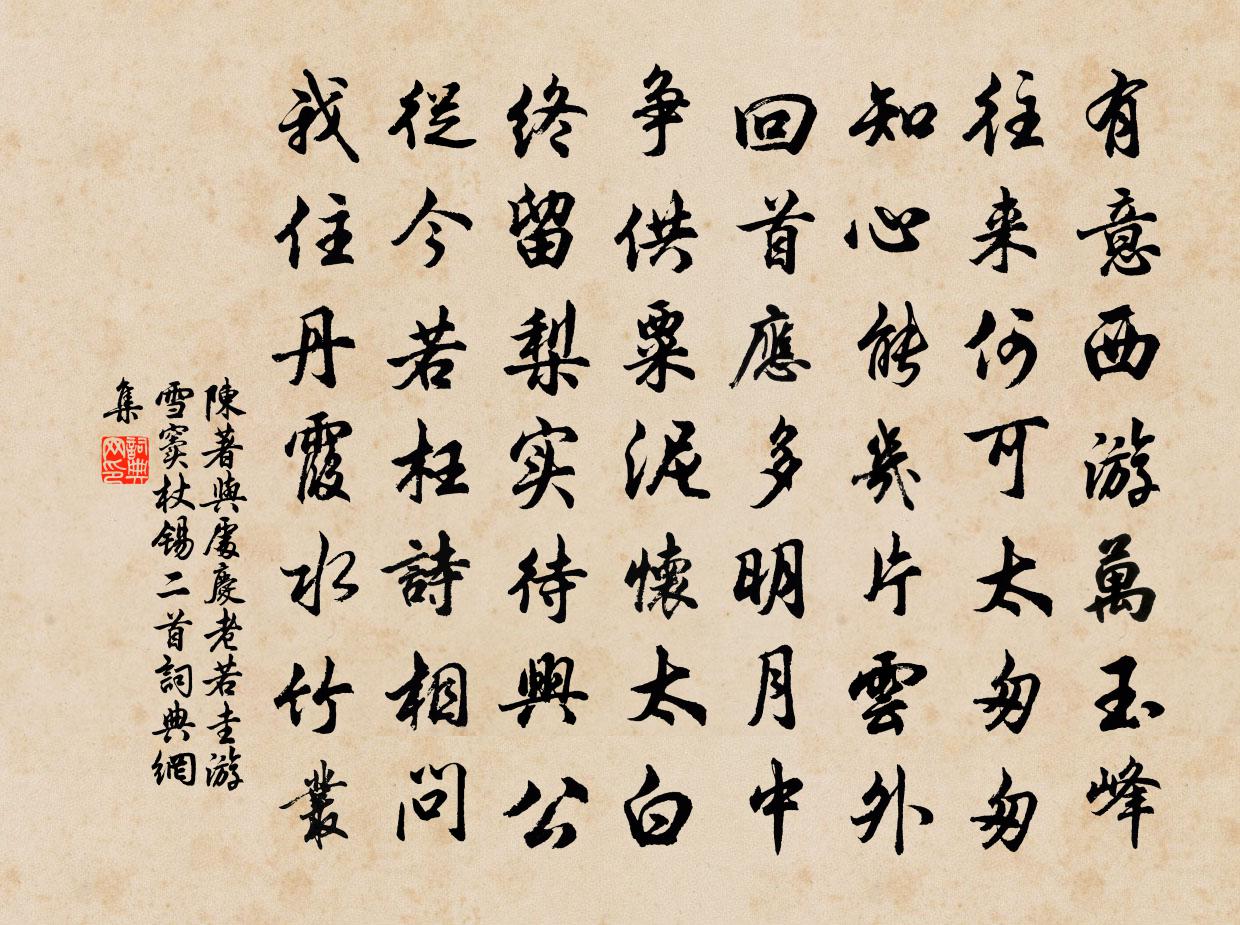 有意西游萬玉峰
往来何可太匆匆
知心能幾片雲外
回首應多明月中
争供粟泥懷太白
终留梨实待興公
從今若枉詩相問
我住丹霞水竹叢
陳著與處慶老若圭游
雪竇杖錫二首詞典網
集
詞典
网印